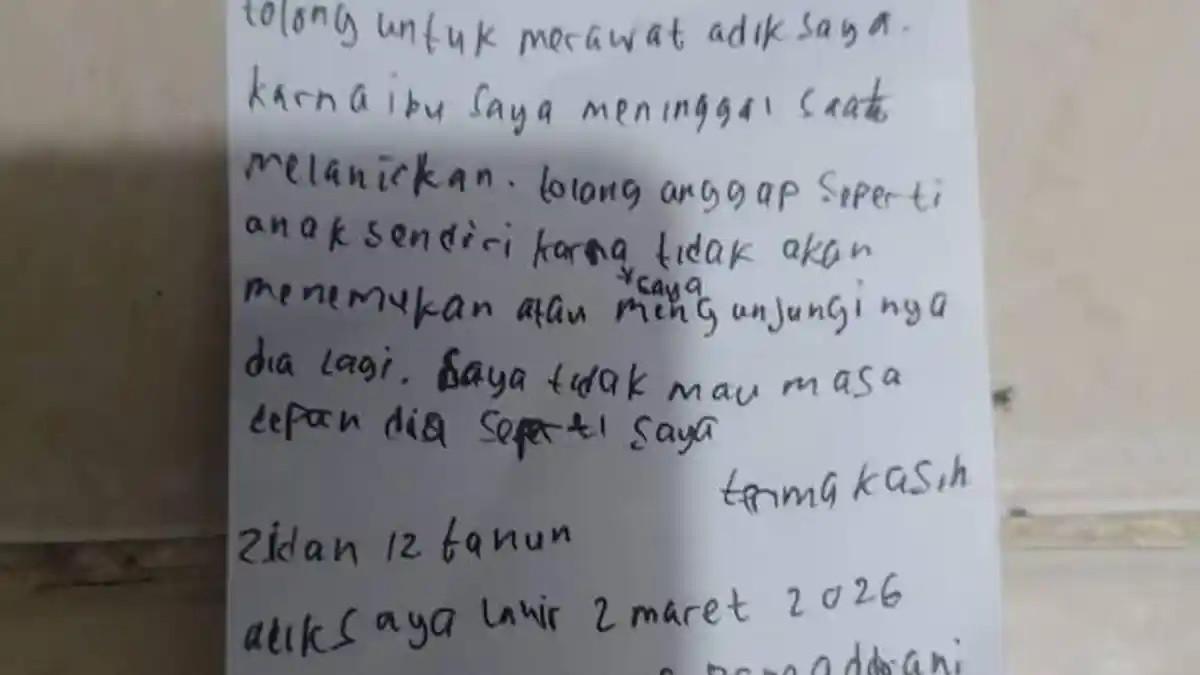 tolong untuk merawat adik saya.
karna ibu saya meninggal saat
melanirkan. tolong anggap seperti
anak sendiri karna tidak akan
*saya
menemukan atau mengunjungi nya
dia lagi. Saya tidak mau masa
depan dia seperti saya
terma kasih
Zidan 12 tahun
adik saya lahir 2 maret 2026